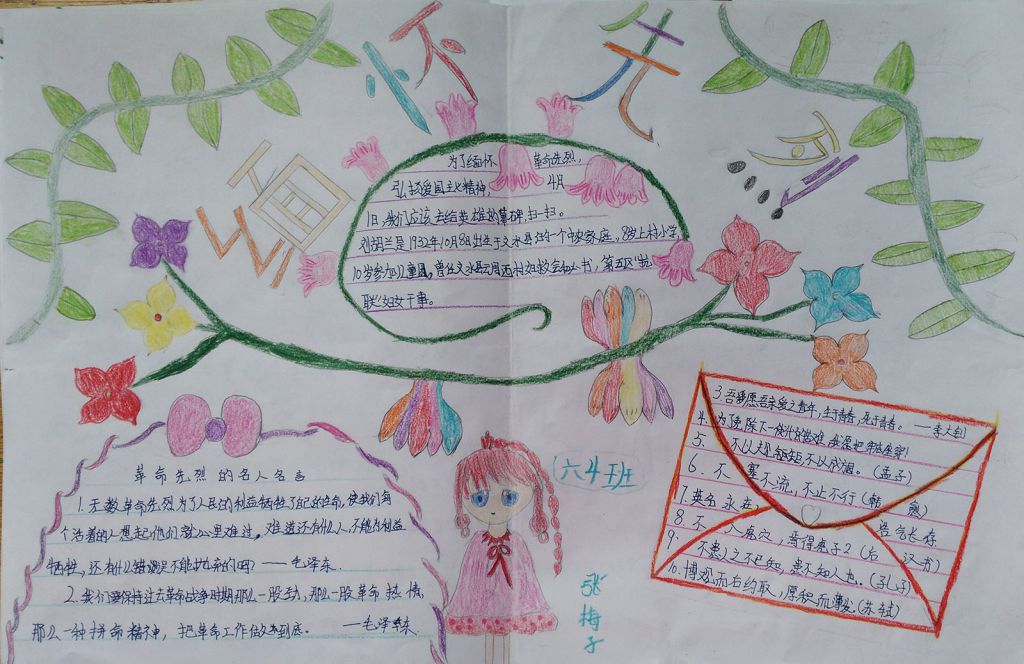 缅怀先烈
为了缅怀革命先烈,
弘扬爱国主义精神, 4月
1日,我们应该去给英雄的墓碑,扫一扫。
刘胡兰是1932年10月8日出生于文水县 的一个中农家庭。8岁上村小学
10岁参加儿童团。曾任文水县云周西村妇救会 书,第五区“抗
联”妇女干事。
革命先烈的名人名言
1.无数革命先烈为了人民的利益牺牲了 的生命,使我们每
个活着的人想起他们就心里难过,难道还有什么人不能为利益
牺牲,还有什么错误不能抛弃的吗?——毛泽东.
2.我们要保持过去革命战争时期那么一股劲,那么一股革命热情,
那么一种拼命精神,把革命工作做到底。——毛泽东.
六4班
张梅子
3.吾愿吾亲爱之青年,生于青春,死于青春。——李大钊
4.为了免除下一代的苦难,我愿把牢底坐穿!
5. 不以 短,不以成涸。(孟子)
6.不塞不流,不止不行(韩愈)
7.英名永在,浩气长存
8.不入虎穴,焉得虎子2(后汉书)
9.不患人之不己知,患不知人也。(孔子)
10.博观而右约取,厚积而薄发(苏轼)